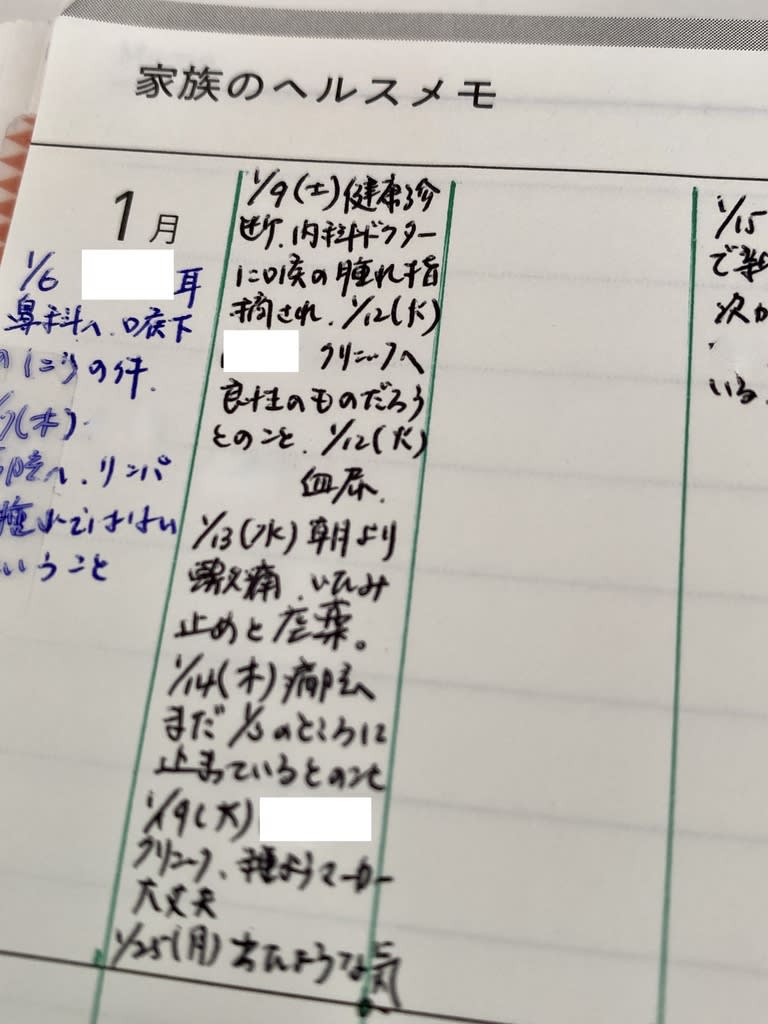 家族のヘルスメモ
1月
1/6 耳
鼻科へ、口腔下
のしこりの件.
(木)
へ、リンパ
腫れではない
いうこと
1/9(土)健康診
断、内科ドクター
に口腔の腫れ指
摘され、1/12(火)
クリニックへ
良性のものだろう
とのこと、1/12(火)
血尿、
1/13(水)朝より
激痛、いたみ
止めと座薬。
1/14(木)病院へ
まだ1/3のところに
止まっているとのこと
1/19(火)
クリニック、種ようマーカー
大丈夫
1/25(月)出たような気
1/15
で
次か
いる